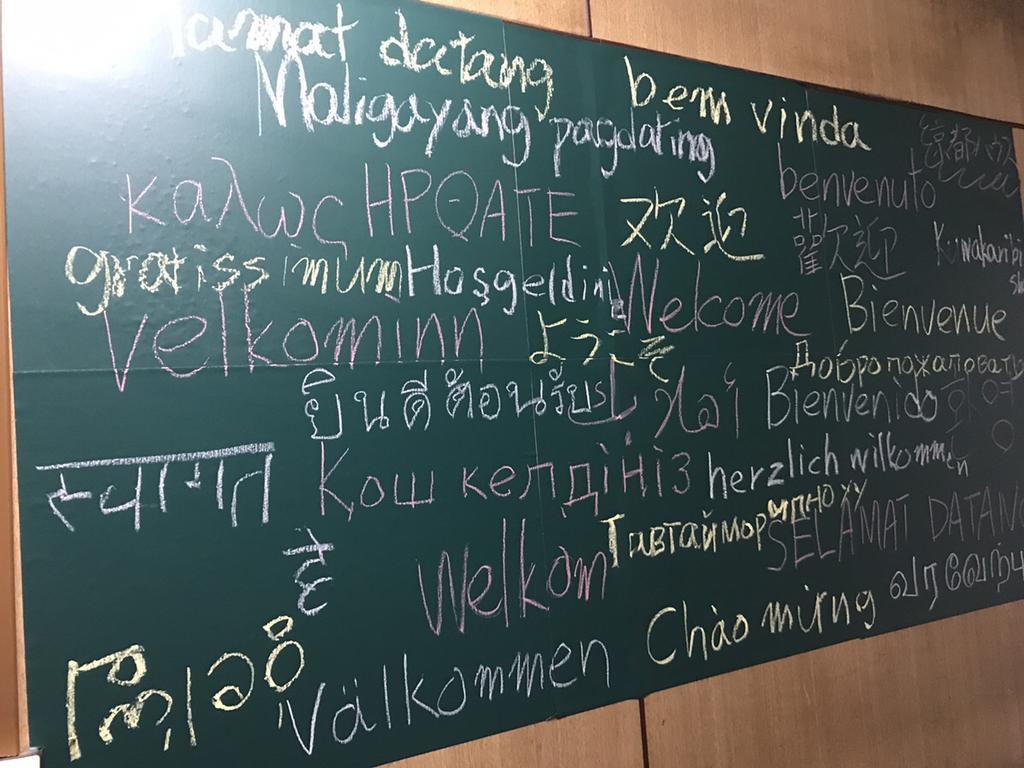 datang
bem vinda
Maligayang pagdating
benvenuto
καλως ΗΡΘΑΤΕ
欢迎
歡迎
gratissimum
Hoşgeldiniz
Welcome
Bienvenue
Velkominn
ようこそ
Добро пожаловать
ยินดีต้อนรับ
Bienvenido
स्वागत
है
Қош келдіңіз
herzlich wilkommen
Тавтай морилно уу
SELAMAT DATANG
Welkom
Chào mừng
Välkommen